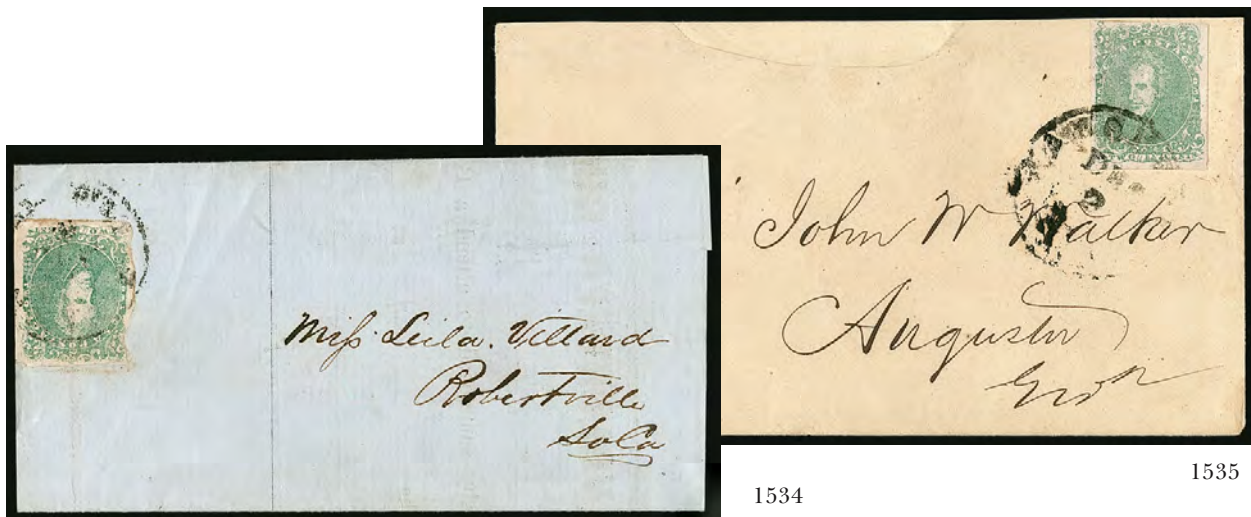 Miss Leila. Villard
Robertville
So Ca
John W Walker
Augusta
1534
1535